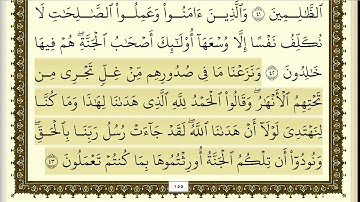 ٱلظَّـٰلِمِينَ ٤١ وَٱلَّذِينَ ءَامَنُوا۟ وَعَمِلُوا۟ ٱلصَّـٰلِحَـٰتِ لَا
نُكَلِّفُ نَفْسًا إِلَّا وُسْعَهَآ أُو۟لَـٰٓئِكَ أَصْحَـٰبُ ٱلْجَنَّةِ ۖ هُمْ فِيهَا
خَـٰلِدُونَ ٤٢ وَنَزَعْنَا مَا فِى صُدُورِهِم مِّنْ غِلٍّ تَجْرِى مِن
تَحْتِهِمُ ٱلْأَنْهَـٰرُ ۖ وَقَالُوا۟ ٱلْحَمْدُ لِلَّهِ ٱلَّذِى هَدَىٰنَا لِهَـٰذَا وَمَا كُنَّا
لِنَهْتَدِىَ لَوْلَآ أَنْ هَدَىٰنَا ٱللَّهُ ۖ لَقَدْ جَآءَتْ رُسُلُ رَبِّنَا بِٱلْحَقِّ ۖ
وَنُودُوٓا۟ أَن تِلْكُمُ ٱلْجَنَّةُ أُورِثْتُمُوهَا بِمَا كُنتُمْ تَعْمَلُونَ ٤٣
١٥٥